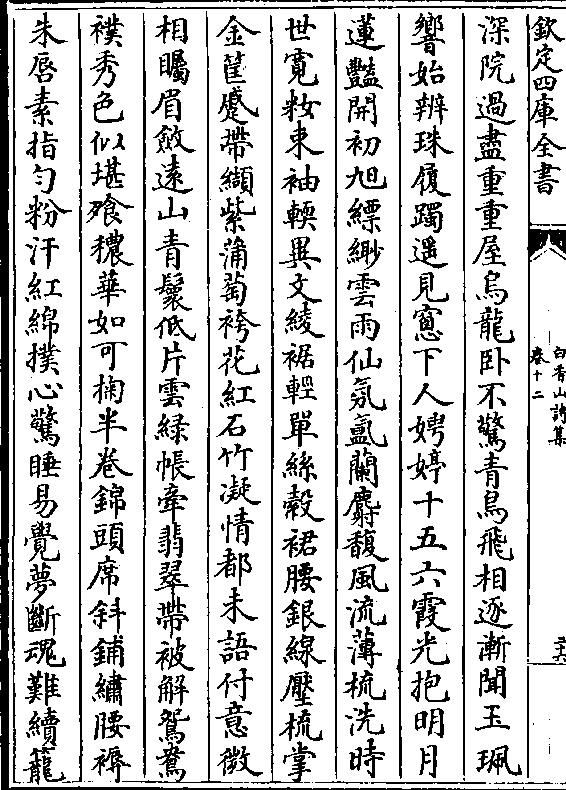 欽定四庫全書
白香山詩集
卷十二
深院過盡重重屋烏龍卧不驚青鳥飛相逐漸聞玉珮
響始辨珠履躅遥見窻下人娉婷十五六霞光抱明月
蓮豔開初旭縹緲雲雨仙氛氲蘭麝馥風流薄梳洗時
世寛粧束袖軟異文綾裾輕單絲縠裙腰銀線壓梳掌
金筐蹙帶纈紫蒲萄袴花紅石竹凝情都未語付意微
相矚眉斂遠山青鬟低片雲緑帳牽翡翠帶被解鴛鴦
襆秀色似堪飱穠華如可掬半卷錦頭席斜鋪繡腰褥
朱唇素指勻粉汗紅綿撲心驚睡易覺夢斷魂難續籠